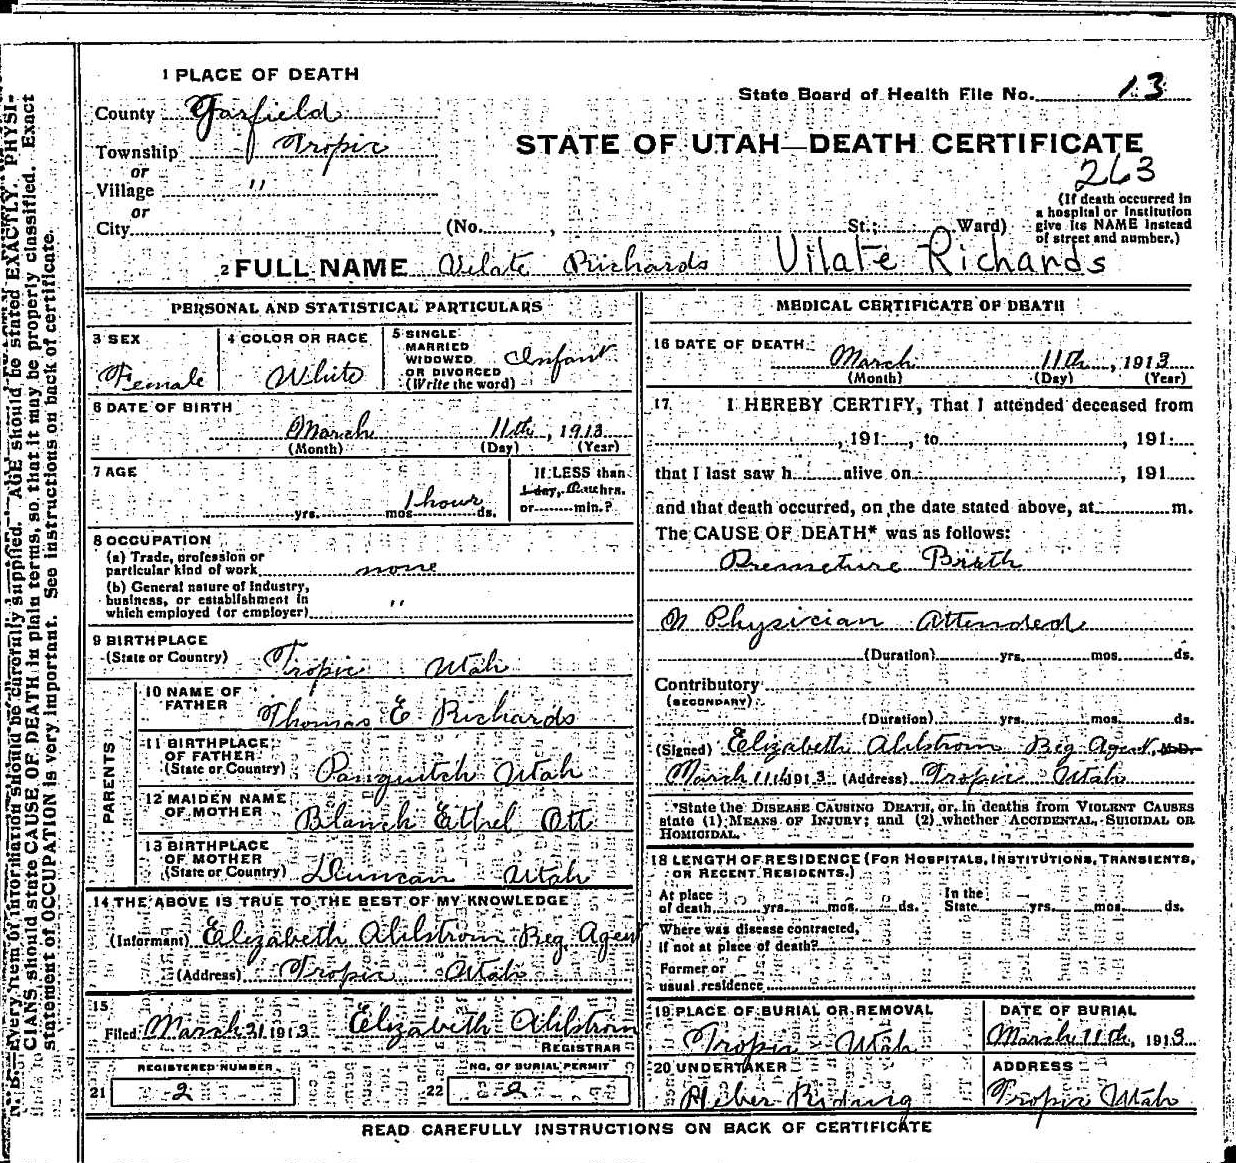 1 PLACE OF DEATH
State Board of Health File No. 13
County Garfield
STATE OF UTAH—DEATH CERTIFICATE
Township Tropic
263
or
Village "
or
City (No. , St.; Ward)
(If death occurred in a hospital or institution give its NAME instead of street and number.)
2 FULL NAME Vilate Richards Vilate Richards
PERSONAL AND STATISTICAL PARTICULARS
3 SEX
Female
4 COLOR OR RACE
White
5 SINGLE
MARRIED
WIDOWED
OR DIVORCED
(Write the word)
Infant
6 DATE OF BIRTH
March 11th, 1913
(Month) (Day) (Year)
7 AGE
1 hour
yrs. mos. ds.
If LESS than
1 day, hrs.
or min.?
8 OCCUPATION
(a) Trade, profession or
particular kind of work none
(b) General nature of Industry,
business, or establishment in
which employed (or employer) "
9 BIRTHPLACE
(State or Country) Tropic Utah
PARENTS
10 NAME OF
FATHER
Thomas E Richards
11 BIRTHPLACE
OF FATHER
(State or Country) Panguitch Utah
12 MAIDEN NAME
OF MOTHER Blanch Eithel Ott
13 BIRTHPLACE
OF MOTHER
(State or Country) Duncan Utah
14 THE ABOVE IS TRUE TO THE BEST OF MY KNOWLEDGE
(Informant) Elizabeth Ahlstrom Reg. Agent
(Address) Tropic Utah
15
Filed March 31 1913 Elizabeth Ahlstrom
REGISTRAR
REGISTERED NUMBER
21 2
NO. OF BURIAL PERMIT
22 2
MEDICAL CERTIFICATE OF DEATH
16 DATE OF DEATH
March 11th, 1913
(Month) (Day) (Year)
17 I HEREBY CERTIFY, That I attended deceased from
, 191 , to , 191
that I last saw h alive on , 191
and that death occurred, on the date stated above, at m.
The CAUSE OF DEATH* was as follows:
Premeture Birth
Physician Attended
(Duration) yrs. mos. ds.
Contributory
(SECONDARY)
(Duration) yrs. mos. ds.
(Signed) Elizabeth Ahlstrom Reg Agent, M.D.
March 11th 1913 (Address) Tropic Utah
*State the DISEASE CAUSING DEATH, or, in deaths from VIOLENT CAUSES
state (1) MEANS OF INJURY; and (2) whether ACCIDENTAL, SUICIDAL OR
HOMICIDAL.
18 LENGTH OF RESIDENCE (FOR HOSPITALS, INSTITUTIONS, TRANSIENTS,
OR RECENT RESIDENTS.)
At place
of death yrs. mos. ds.
In the
State yrs. mos. ds.
Where was disease contracted,
if not at place of death?
Former or
usual residence
19 PLACE OF BURIAL OR REMOVAL
Tropic Utah
DATE OF BURIAL
March 11th, 1913
20 UNDERTAKER
Heber Riding
ADDRESS
Tropic Utah
READ CAREFULLY INSTRUCTIONS ON BACK OF CERTIFICATE
N. B.—Every item of information should be carefully supplied. AGE should be stated EXACTLY. PHYSI-
CIANS should state CAUSE OF DEATH in plain terms, so that it may be properly classified. Exact
statement of OCCUPATION is very important. See instructions on back of certificate.